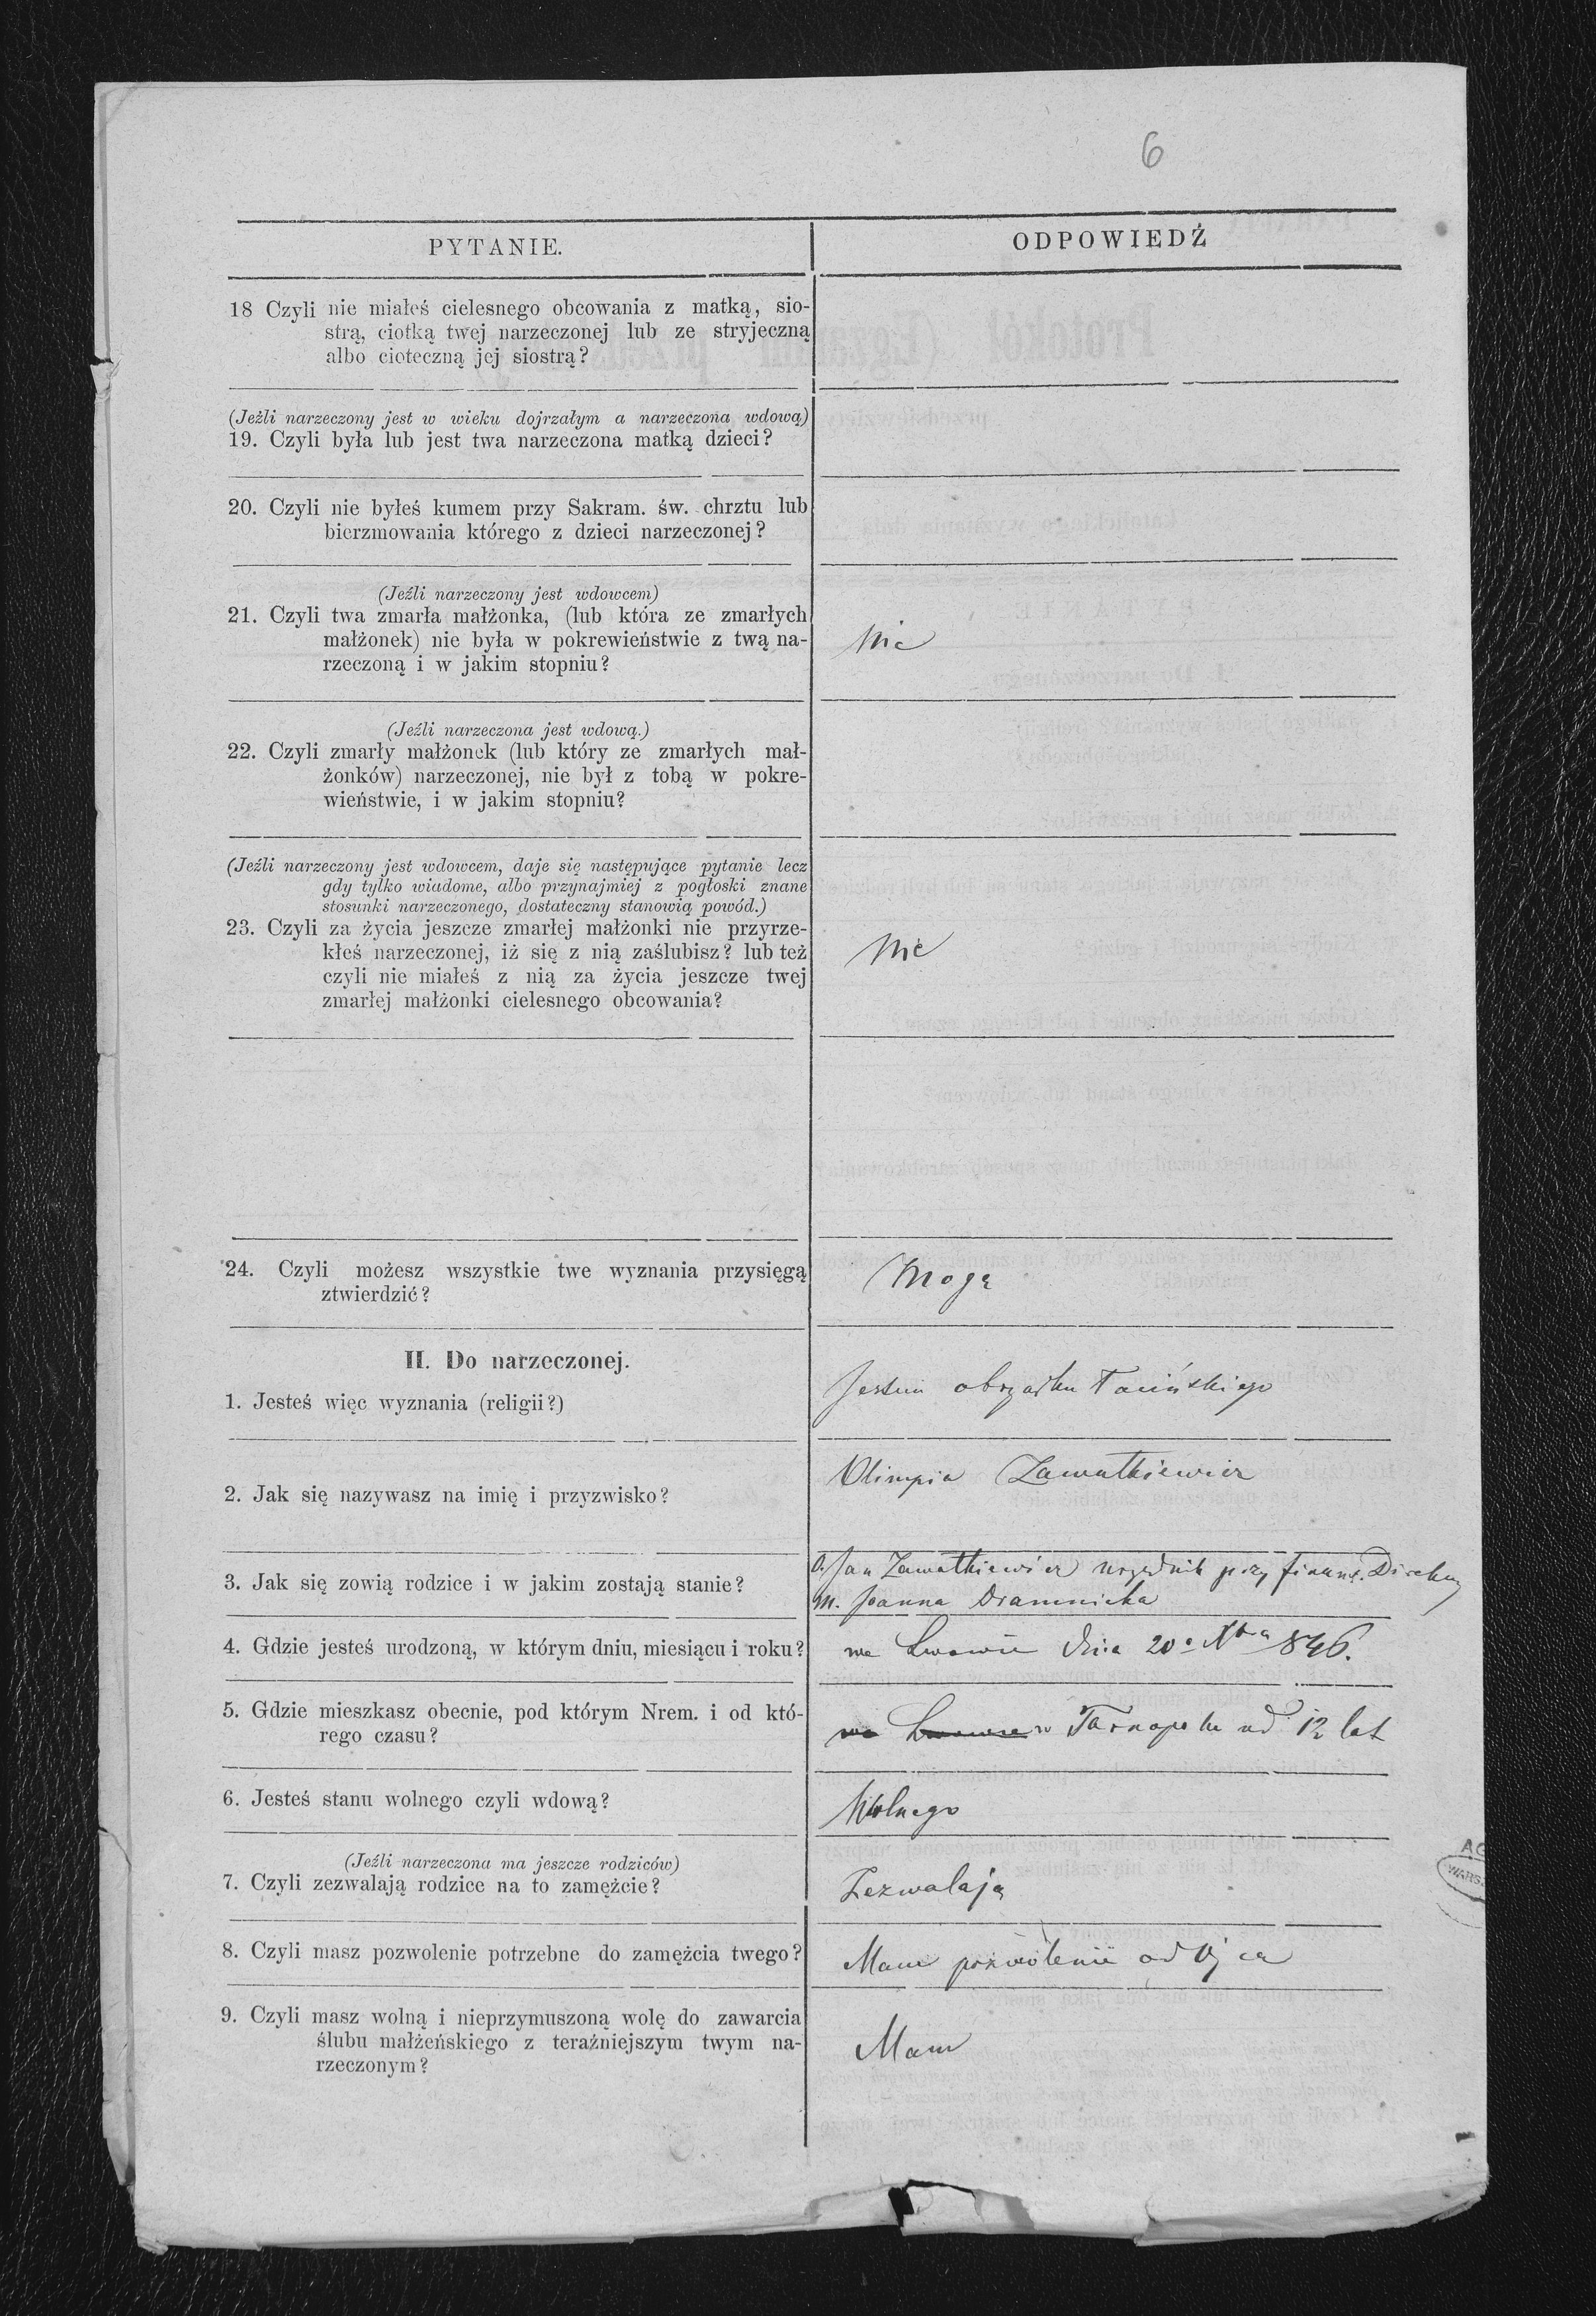 6
PYTANIE.
ODPOWIEDŹ
18 Czyli nie miałeś cielesnego obcowania z matką, sio-
strą, ciotką twej narzeczonej lub ze stryjeczną
albo cioteczną jej siostrą?
(Jeźli narzeczony jest w wieku dojrzałym a narzeczona wdową)
19. Czyli była lub jest twa narzeczona matką dzieci?
20. Czyli nie byłeś kumem przy Sakram. św. chrztu lub
bierzmowania którego z dzieci narzeczonej?
(Jeźli narzeczony jest wdowcem)
21. Czyli twa zmarła małżonka, (lub która ze zmarłych
małżonek) nie była w pokrewieństwie z twą na-
rzeczoną i w jakim stopniu?
Nie
(Jeźli narzeczona jest wdową.)
22. Czyli zmarły małżonek (lub który ze zmarłych mał-
żonków) narzeczonej, nie był z tobą w pokre-
wieństwie, i w jakim stopniu?
(Jeźli narzeczony jest wdowcem, daje się następujące pytanie lecz
gdy tylko wiadome, albo przynajmiej z pogłoski znane
stosunki narzeczonego, dostateczny stanowią powód.)
23. Czyli za życia jeszcze zmarłej małżonki nie przyrze-
kłeś narzeczonej, iż się z nią zaślubisz? lub też
czyli nie miałeś z nią za życia jeszcze twej
zmarłej małżonki cielesnego obcowania?
Nie
24. Czyli możesz wszystkie twe wyznania przysięgą
ztwierdzić?
Mogę
II. Do narzeczonej.
1. Jesteś więc wyznania (religii?)
Jestem obrządku łacińskiego
2. Jak się nazywasz na imię i przyzwisko?
Olimpia Zawałkiewicz
3. Jak się zowią rodzice i w jakim zostają stanie?
O. Jan Zawałkiewicz urzędnik przy finans.
M. Joanna
4. Gdzie jesteś urodzoną, w którym dniu, miesiącu i roku?
we Lwowie dnia 20o 846.
5. Gdzie mieszkasz obecnie, pod którym Nrem. i od któ-
rego czasu?
we Lwowie w Tarnopolu od 12 lat
6. Jesteś stanu wolnego czyli wdową?
Wolnego
(Jeźli narzeczona ma jeszcze rodziców)
7. Czyli zezwalają rodzice na to zamężcie?
Zezwalają
8. Czyli masz pozwolenie potrzebne do zamężcia twego?
Mam pozwolenie od Ojca
9. Czyli masz wolną i nieprzymuszoną wolę do zawarcia
ślubu małżeńskiego z teraźniejszym twym na-
rzeczonym?
Mam